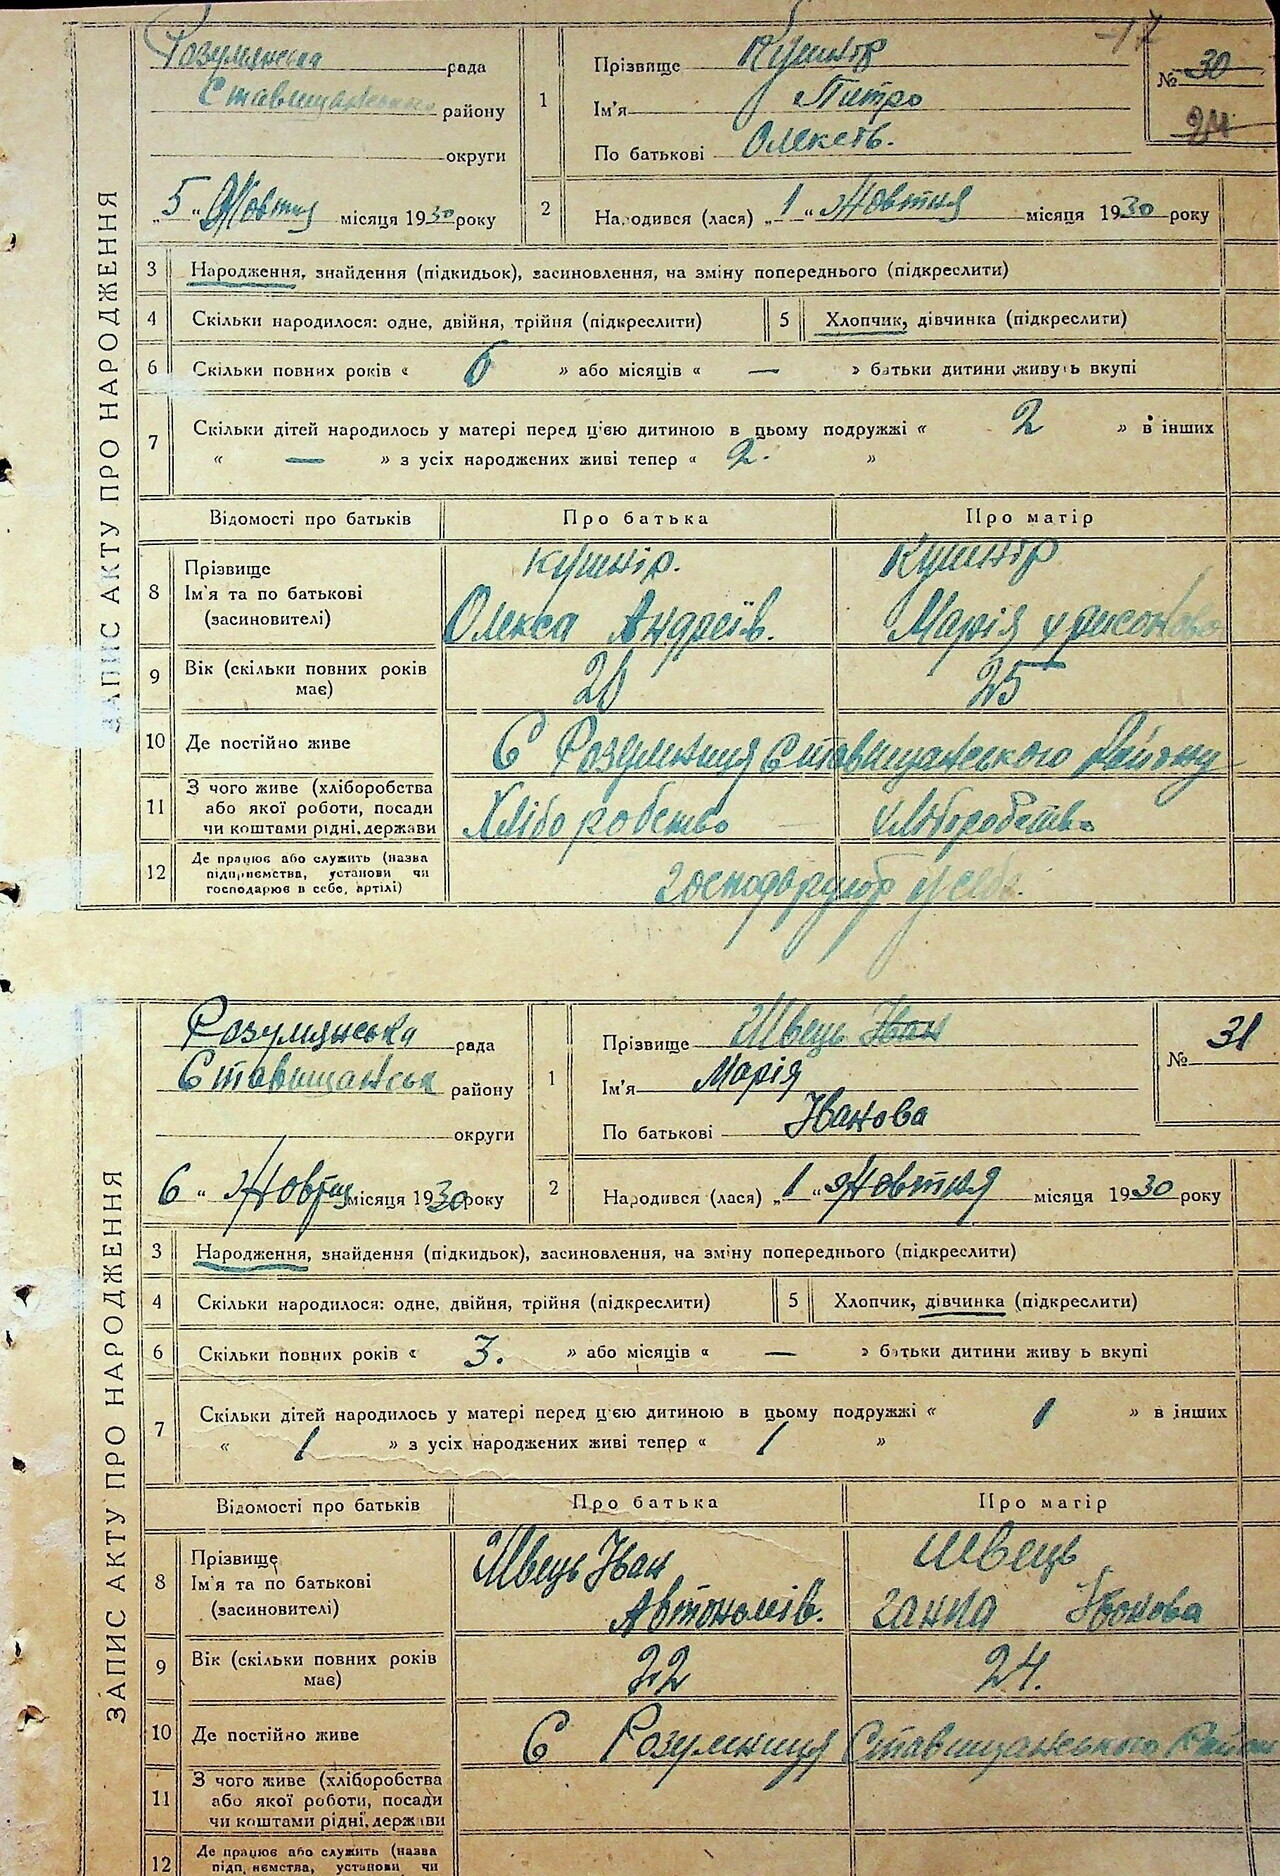 ЗАПИС АКТУ ПРО НАРОДЖЕННЯ
Розумянська рада
Ставищанськ району
округи
„5“ Жовтня місяця 1930 року
1 Прізвище Кушнір
Ім'я Питро
По батькові Олексів.
-17
№ 30
24
2 Народився (лася) „1“ Жовтня місяця 1930 року
3 Народження, знайдення (підкидьок), засиновлення, на зміну попереднього (підкреслити)
4 Скільки народилося: одне, двійня, трійня (підкреслити) 5 Хлопчик, дівчинка (підкреслити)
6 Скільки повних років « 6 » або місяців « — » батьки дитини живуть вкупі
7 Скільки дітей народилось у матері перед ц'єю дитиною в цьому подружжі « 2 » в інших
« — » з усіх народжених живі тепер « 2. »
Відомості про батьків Про батька Про матір
8 Прізвище Ім'я та по батькові (засиновителі)
Кушнір. Кушнір
Олекса Андреїв. Марія
9 Вік (скільки повних років має) 25
10 Де постійно живе С Розумниця Ставищанського Району
11 З чого живе (хліборобства або якої роботи, посади чи коштами рідні, держави
Хліборобство хліборобство
12 Де працює або служить (назва підприємства, установи чи господарює в себе, артілі)
господарюют у себе.
ЗАПИС АКТУ ПРО НАРОДЖЕННЯ
Розумянська рада
Ставищанськ району
округи
6 “ Жовтня місяця 1930 року
1 Прізвище Швець Іван
Ім'я Марія
По батькові Іванова
№ 31
2 Народився (лася) „1“ Жовтня місяця 1930 року
3 Народження, знайдення (підкидьок), засиновлення, на зміну попереднього (підкреслити)
4 Скільки народилося: одне, двійня, трійня (підкреслити) 5 Хлопчик, дівчинка (підкреслити)
6 Скільки повних років « 3. » або місяців « — » батьки дитини живу ь вкупі
7 Скільки дітей народилось у матері перед ц'єю дитиною в цьому подружжі « 1 » в інших
« 1 » з усіх народжених живі тепер « 1 »
Відомості про батьків Про батька Про матір
8 Прізвище Ім'я та по батькові (засиновителі)
Швець Іван Швець
Автономів. Ганна Іванова
9 Вік (скільки повних років має) 22 24.
10 Де постійно живе С Розумниця Ставищанського Район
11 З чого живе (хліборобства або якої роботи, посади чи коштами рідні, держави
12 Де працює або служить (назва
підп, иємства, установи чи